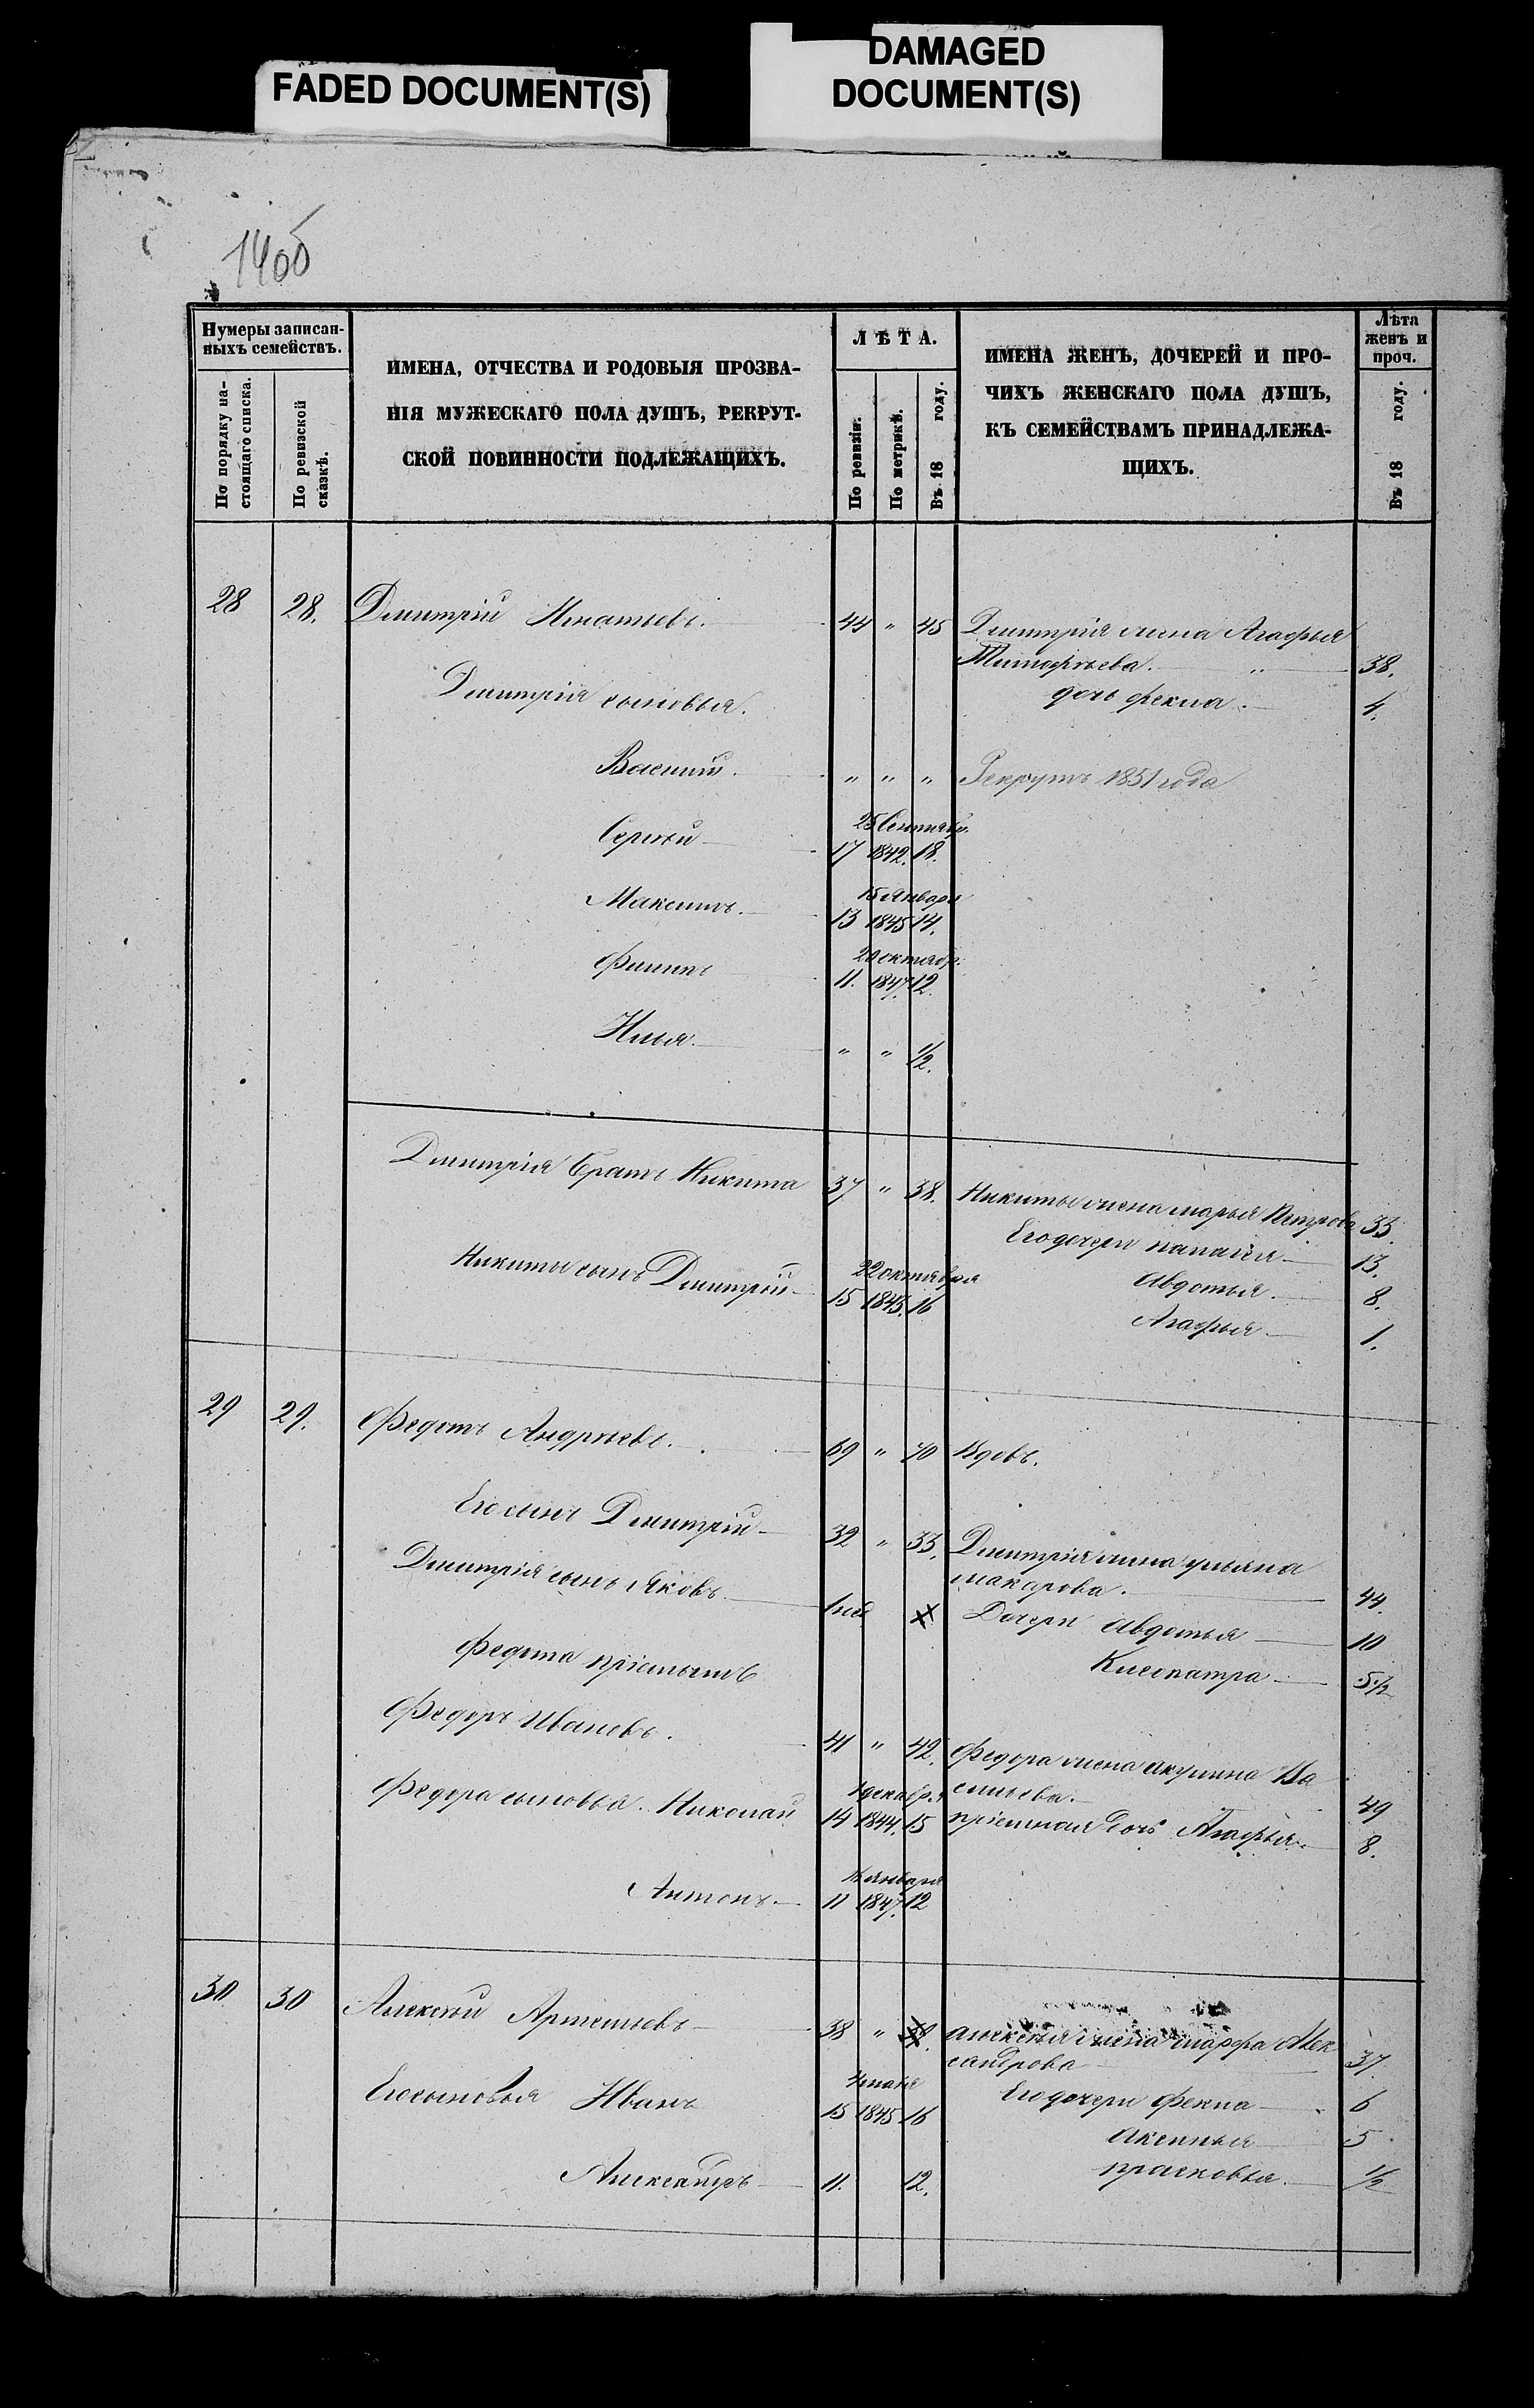 FADED DOCUMENT(S)
DAMAGED
DOCUMENT(S)
14об
Нумеры записан-
ныхъ семействъ.
По порядку на-
стоящаго списка.
По ревизской
сказкѣ.
ИМЕНА, ОТЧЕСТВА И РОДОВЫЯ ПРОЗВА-
НІЯ МУЖЕСКАГО ПОЛА ДУШЪ, РЕКРУТ-
СКОЙ ПОВИННОСТИ ПОДЛЕЖАЩИХЪ.
ЛѢТА.
По ревизіи.
По метрикѣ.
Въ 18 году.
ИМЕНА ЖЕНЪ, ДОЧЕРЕЙ И ПРО-
ЧИХЪ ЖЕНСКАГО ПОЛА ДУШЪ,
КЪ СЕМЕЙСТВАМЪ ПРИНАДЛЕЖА-
ЩИХЪ.
Лѣта
женъ и
проч.
Въ 18 году.
28 28. Дмитрій Игнатьевъ. 44 " 45 Дмитрія жена Агафья
Тимофѣева. " 38.
Дмитрія сыновья. дочь Фекла. 4.
Василій. " " " Рекрутъ 1851 года
25 Сентябр.
Сергѣй 17 1842. 18.
15 Января
Максимъ. 13 1845 14.
20 октябр.
Филипъ 11. 1847. 12.
Илья. " " 1/2.
Дмитрія братъ Никита 37 " 38. Никиты жена марья Петрова 33.
Его дочери палагея 13.
22 октября Авдотья. 8.
Никиты сынъ Дмитрій 15 1843. 16
Агафья 1.
29 29. Федотъ Андрѣевъ. 69 " 70 Вдовъ.
Его сынъ Дмитрій 32 " 33. Дмитрія жена ульяна
макарова. 44.
Дмитрія сынъ Яковъ. 1 нед Дочери Авдотья 10
Федота пріемышъ Клеопатра 5 1/2
Федоръ Ивановъ. 41 " 42. Федора жена Акулина Ва
сильева. 49
1 декабря
Федора сыновья. Николай 14 1844. 15 пріемная дочь Агафья. 8.
января
Антонъ. 11 1847. 12
30 30 Алексѣй Артемьевъ 38 " 39. Алексѣя жена марфа Алек
сандрова 37
4 мая
Его сыновья Иванъ 15 1845 16 Его дочери Фекла 6
Аксинья 5
Александръ 11. 12. прасковья. 1/2